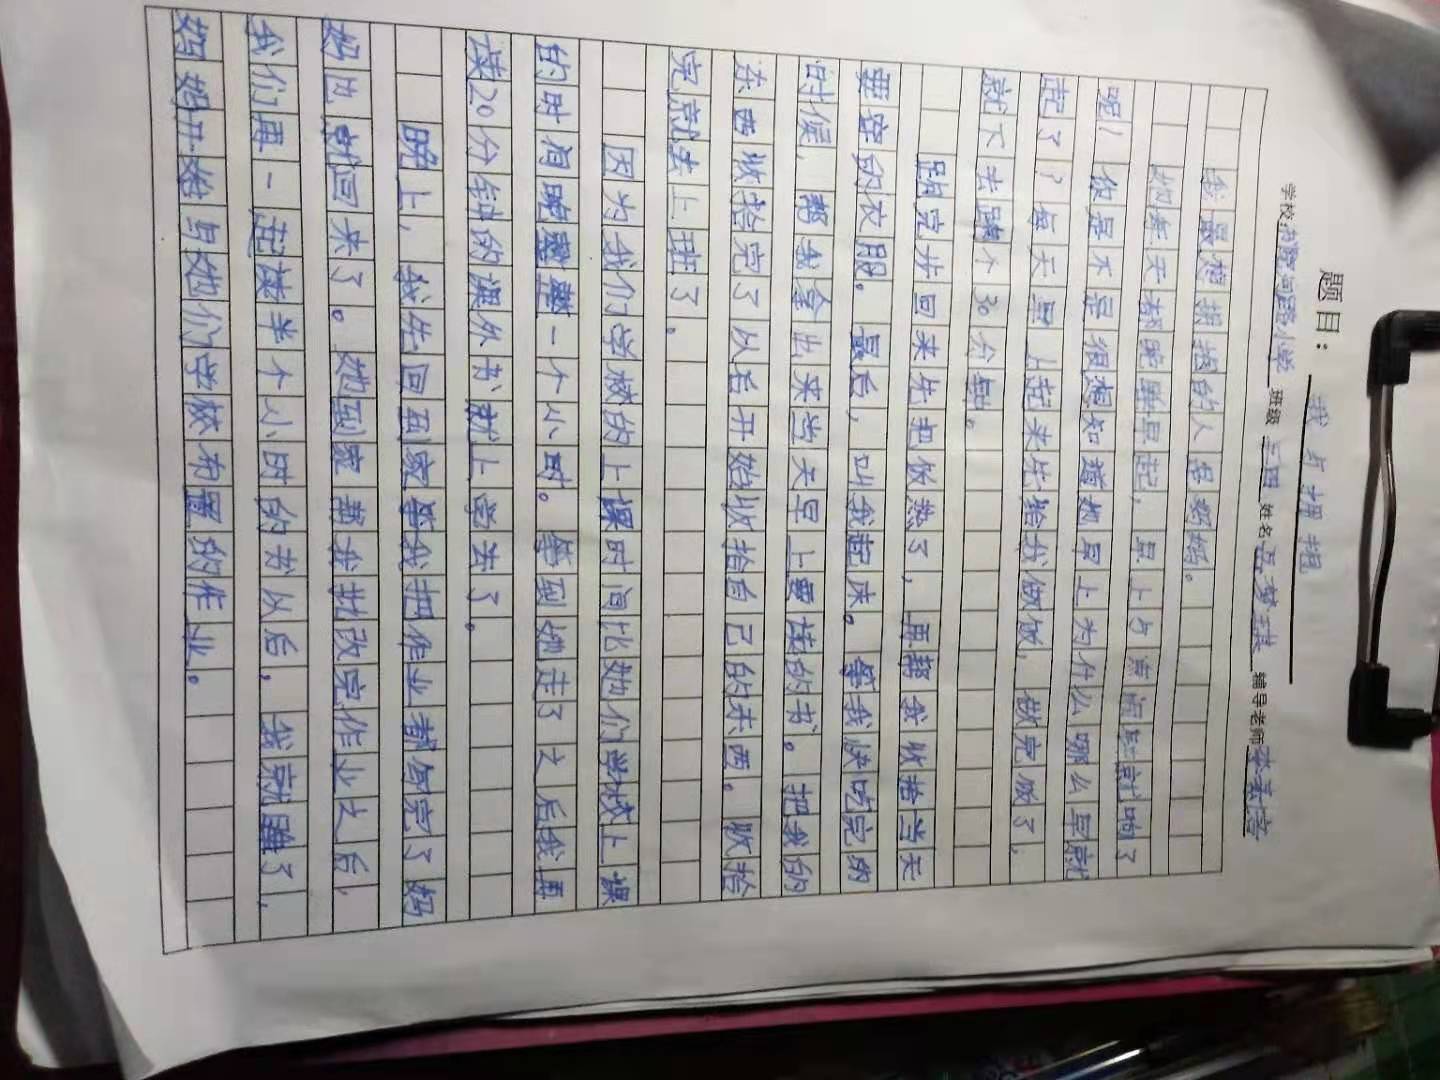 题目：我与拥抱
学校 班级 三四 姓名 孟梦琪 辅导老师 李素萍
我最想拥抱的人是妈妈。
她每天都晚睡早起，早上5点闹铃就响了
呢！你是不是很想知道她早上为什么哪么早就
起了？每天早上起来先给我做饭，做完饭了，
就下去跑个30分钟。
跑完步回来先把饭热了，再帮我收拾当天
要穿的衣服。最后，叫我起床。等我快吃完的
时候，帮我拿出来当天早上要读的书。把我的
东西收拾完了以后开始收拾自己的东西。收拾
完就去上班了。
因为我们学校的上课时间比她们学校上课
的时间晚整整一个小时。等到她走了之后我再
读20分钟的课外书就上学去了。
晚上，我先回到家等我把作业都写完了妈
妈也就回来了。她到家帮我批改完作业之后，
我们再一起读半个小时的书以后，我就睡了，
妈妈开始写她们学校布置的作业。